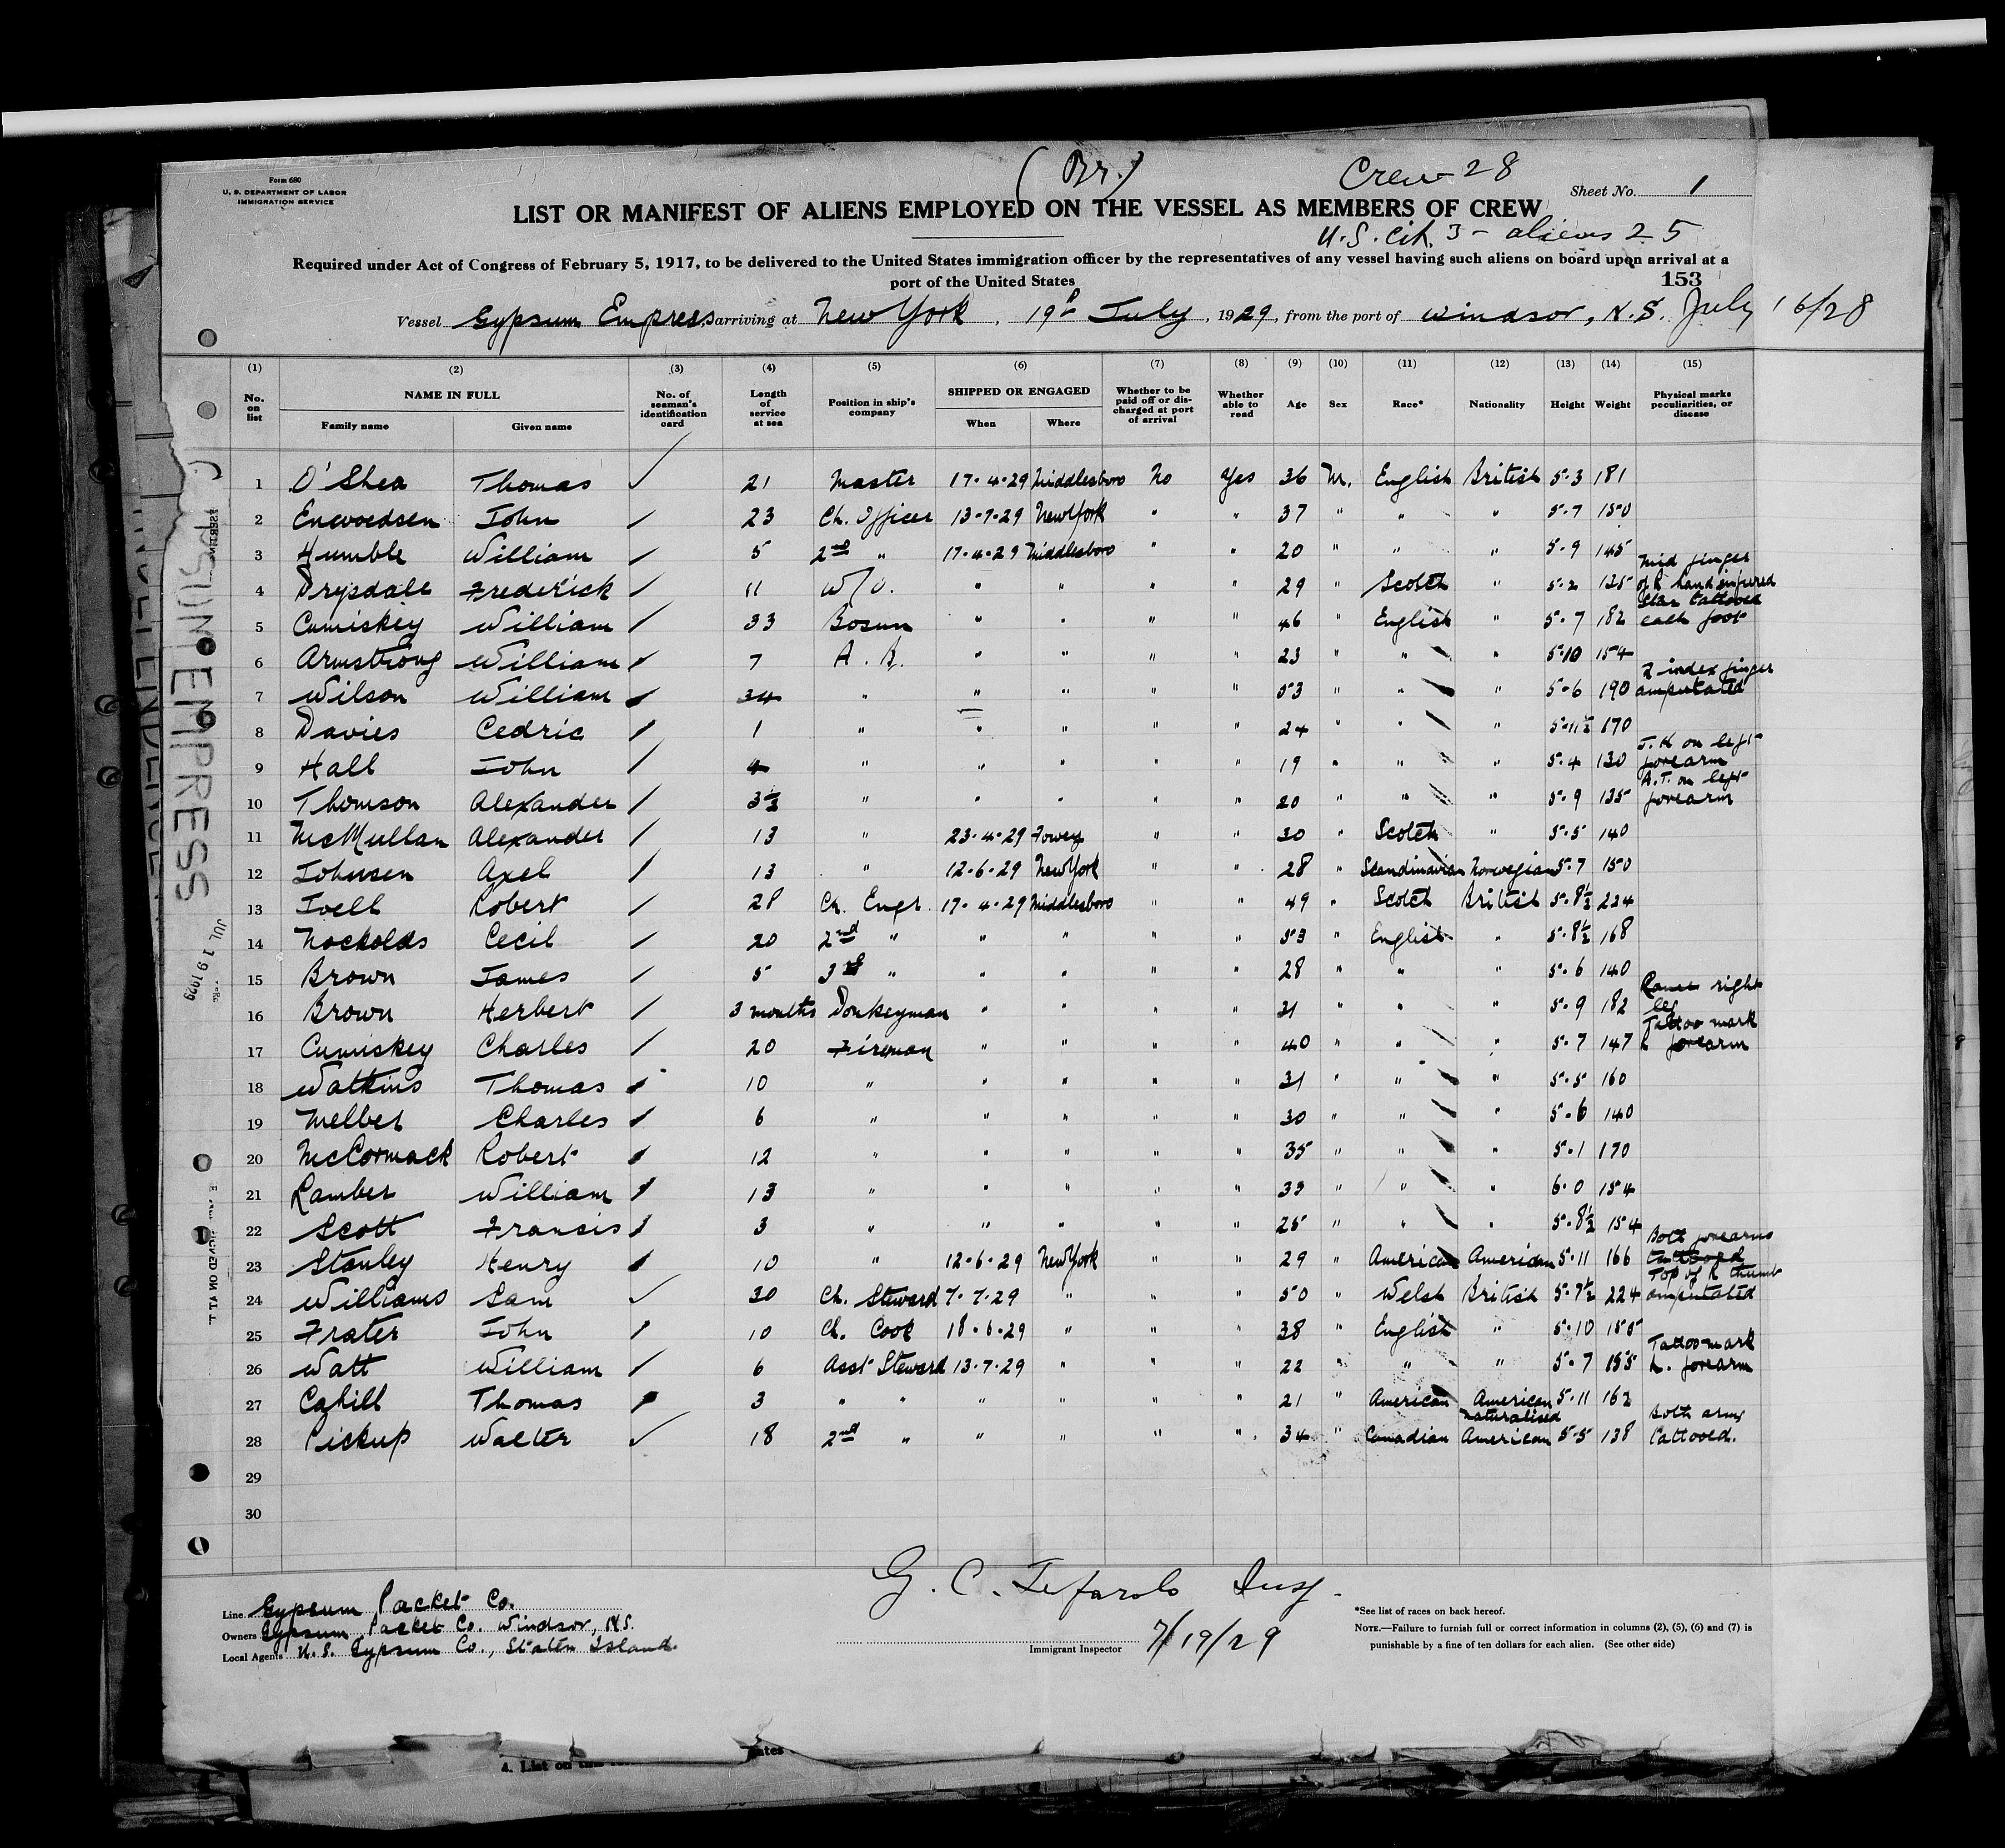 Form 680
U. S. DEPARTMENT OF LABOR
IMMIGRATION SERVICE
(Br.)
Crew 28
Sheet No. 1
LIST OR MANIFEST OF ALIENS EMPLOYED ON THE VESSEL AS MEMBERS OF CREW
U.S. Cit. 3 - aliens 25
Required under Act of Congress of February 5, 1917, to be delivered to the United States immigration officer by the representatives of any vessel having such aliens on board upon arrival at a
port of the United States
153
Vessel Gypsum Empress, arriving at New York, 19th July, 1929, from the port of Windsor, N.S. July 16/28
(1) (2) (3) (4) (5) (6) (7) (8) (9) (10) (11) (12) (13) (14) (15)
No. on list NAME IN FULL Family name Given name No. of seaman's identification card Length of service at sea Position in ship's company SHIPPED OR ENGAGED When Where Whether to be paid off or discharged at port of arrival Whether able to read Age Sex Race* Nationality Height Weight Physical marks peculiarities, or disease
1 O'Shea Thomas ✓ 21 Master 17-4-29 Middlesboro No Yes 36 M. English British 5-3 181
2 Enevoedsen John 23 Ch. Officer 13-7-29 New York " " 37 " " " 5-7 150
3 Humble William 5 2nd " 17-4-29 Middlesboro " " 20 " " " 5-9 145
4 Drysdale Frederick 11 W/O. " " " " 29 " Scotch " 5-2 135 Mid finger of R hand injured
5 Cumiskey William 33 Bosun " " " " 46 " English " 5-7 182 Star tattooed each foot
6 Armstrong William 7 A.B. " " " " 23 " " " 5-10 154
7 Wilson William 34 " " " " " 53 " " " 5-6 190 index finger amputated
8 Davies Cedric 1 " " " " " 24 " " " 5-11½ 170
9 Hall John 4 " " " " " 19 " " " 5-4 130 J.H on left forearm
10 Thomson Alexander 3½ " " " " " 20 " " " 5-9 135 A.T. on left forearm
11 McMullan Alexander 13 " 23-4-29 Fowey " " 30 " Scotch " 5-5 140
12 Johnsen Axel 13 " 12-6-29 New York " " 28 " Scandinavian Norwegian 5-7 150
13 Ivell Robert 28 Ch. Engr. 17-4-29 Middlesboro " " 49 " Scotch British 5-8½ 224
14 Nockolds Cecil 20 2nd " " " " " 53 " English " 5-8½ 168
15 Brown James 5 3rd " " " " " 28 " " " 5-6 140
16 Brown Herbert 3 months Donkeyman " " " " 31 " " " 5-9 182 right leg
17 Cumiskey Charles 20 Fireman " " " " 40 " " " 5-7 147 Tattoo mark R forearm
18 Watkins Thomas 10 " " " " " 31 " " " 5-5 160
19 Melber Charles 6 " " " " " 30 " " " 5-6 140
20 McCormack Robert 12 " " " " " 35 " " " 5-1 170
21 Lamber William 13 " " " " " 33 " " " 6-0 154
22 Scott Francis 3 " " " " " 25 " " " 5-8½ 154
23 Stanley Henry 10 " 12-6-29 New York " " 29 " American American 5-11 166 Both forearms tattooed
24 Williams Sam 30 Ch. Steward 7-7-29 " " " 50 " Welsh British 5-7½ 224 Top of R thumb amputated
25 Frater John 10 Ch. Cook 18-6-29 " " " 38 " English " 5-10 155
26 Watt William 6 Asst Steward 13-7-29 " " " 22 " " " 5-7 155 Tattoo mark L. forearm
27 Cahill Thomas 3 " " " " " " 21 " American American 5-11 162
28 Pickup Walter ✓ 18 2nd " " " " " 34 " Canadian naturalised American 5-5 138 Both arms tattooed.
29
30
Line Gypsum Packet Co.
Owners Gypsum Packet Co. Windsor, N.S.
Local Agents U.S. Gypsum Co., Staten Island.
Immigrant Inspector 7/19/29
*See list of races on back hereof.
NOTE.—Failure to furnish full or correct information in columns (2), (5), (6) and (7) is
punishable by a fine of ten dollars for each alien. (See other side)
EMPRESS
JUL 19 1929
4. List on